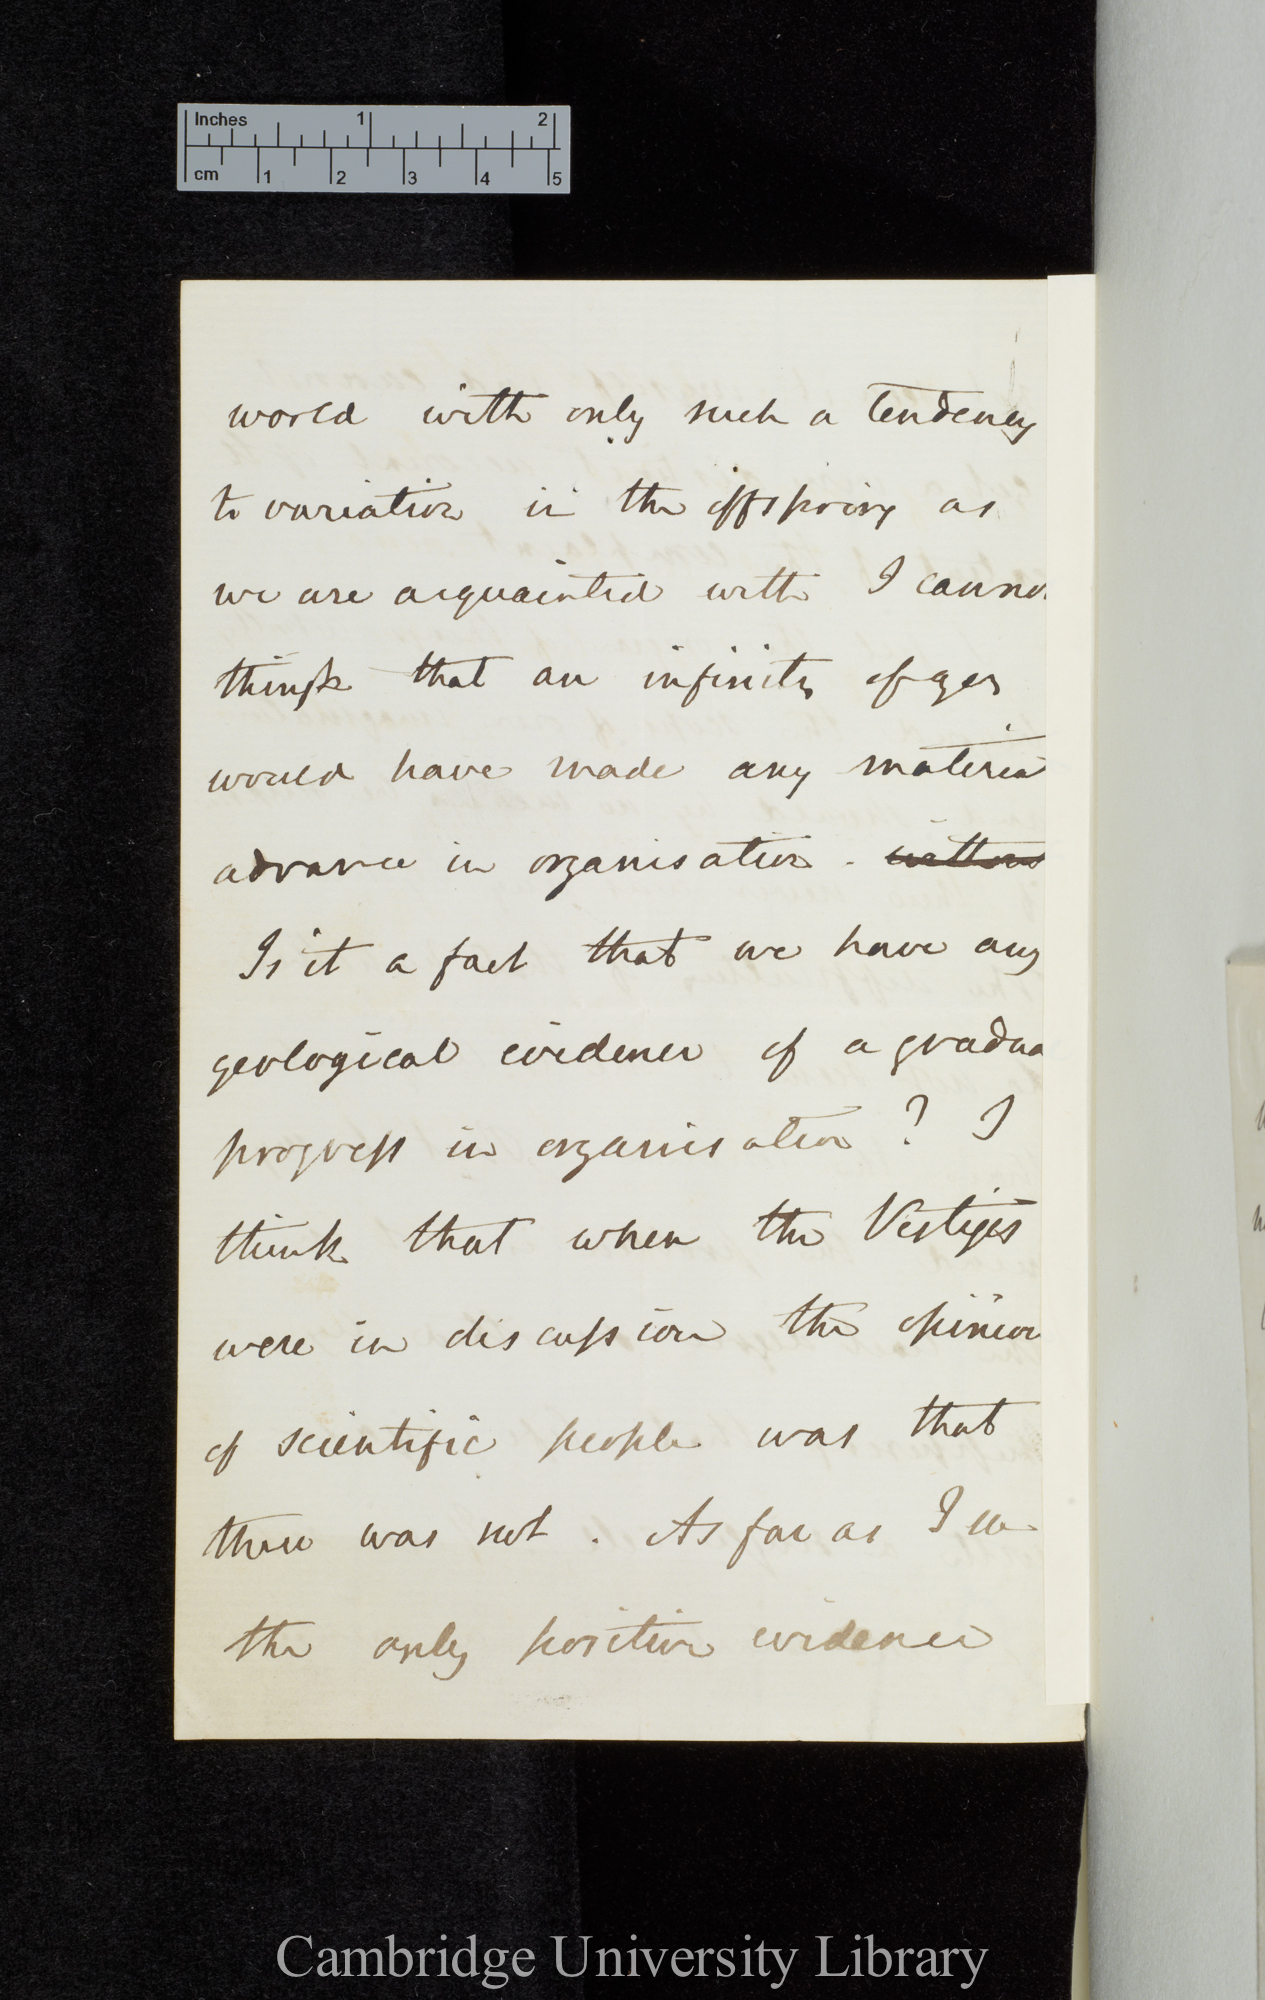 Inches 1 2
cm 1 2 3 4 5
world with only such a tendency
to variation in the offspring as
we are acquainted with I canno
think that an infinity of ages
would have made any materia
advance in organisation.
Is it a fact that we have any
geological evidence of a gradua
progress in organisation? I
think that when the Vestiges
were in discussion the opinion
of scientific people was that
there was not. As far as I see
the only positive evidence
Cambridge University Library